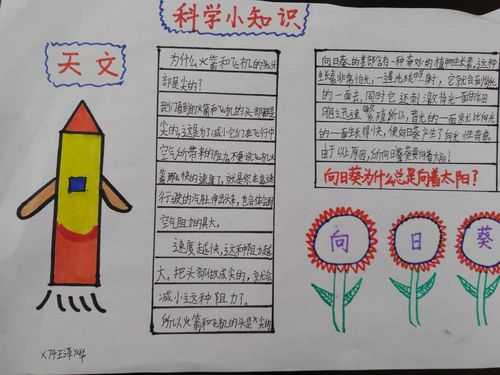 科学小知识
天文
为什么火箭和飞机的头
都是尖的？
我们看到的火箭和飞机的头都是
尖的，这是为了减小它们在飞行中
空气所带来的阻力，不要说飞机火
箭那么快的速度了，就是你在高速
行驶的汽车伸出头来，也会体会到
空气阻力的具大。
速度越快，这种阻力越
大，把头部做成尖的，就会
减小这种阻力了。
所以火箭和飞机的头是尖的
向日葵的茎部含有一种奇妙的植物生长素，这种
生长素非常怕光，一遇光线照射，它就会到背光
的一面去，同时它还刺激背光一面的细
胞迅速繁殖，所以，背光的一面就比向光
的一面生长得快，使向日葵产生了向光性弯曲
由于以上原因，所向日葵要向着太阳！
向日葵为什么总是向着太阳？
向
日
葵